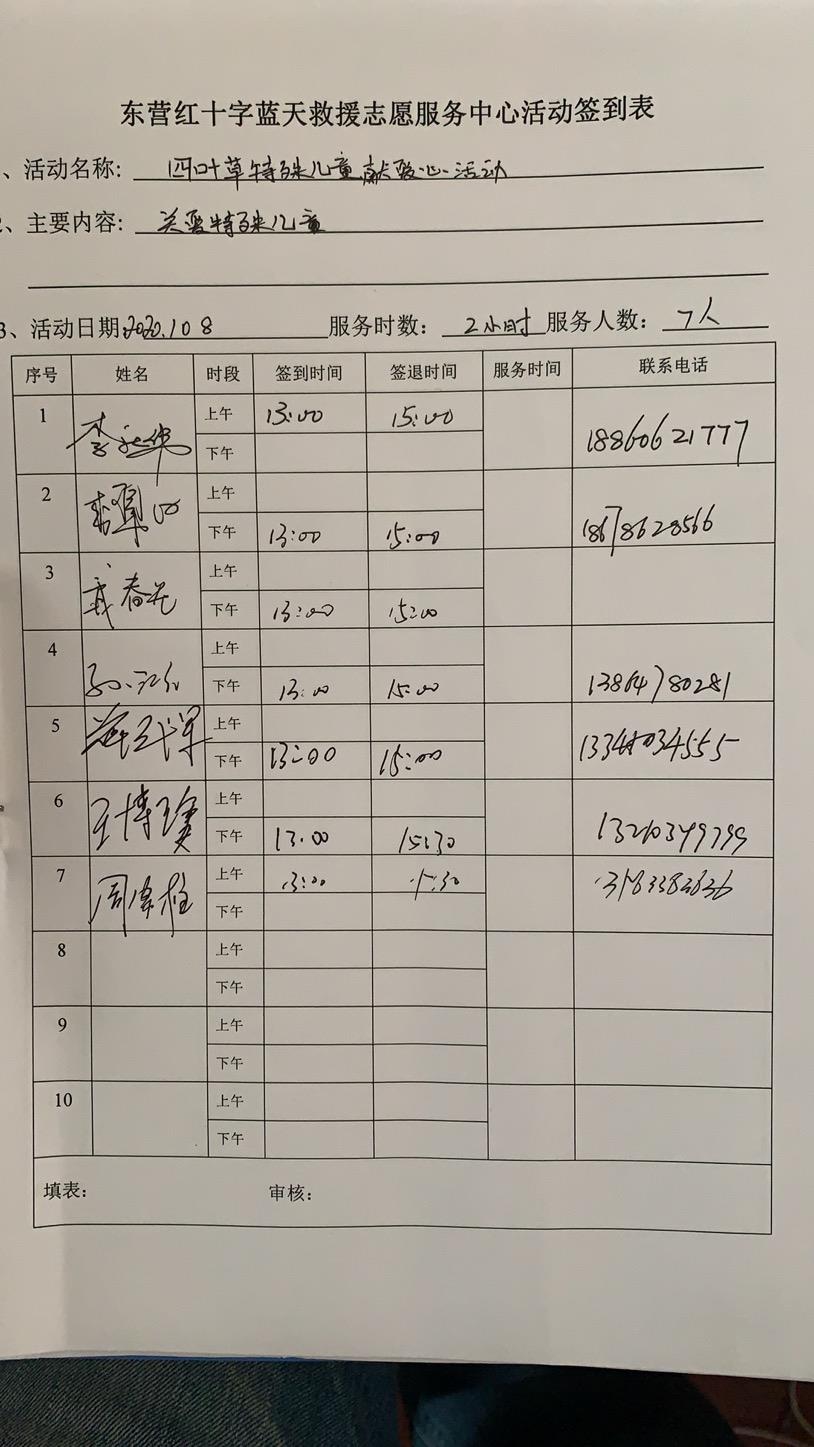 东营红十字蓝天救援志愿服务中心活动签到表
、活动名称: 四叶草特殊儿童献爱心活动
、主要内容: 关爱特殊儿童
3、活动日期: 2020.10 8 服务时数: 2小时 服务人数: 7人
序号 姓名 时段 签到时间 签退时间 服务时间 联系电话
1 李 上午 13:00 15:00 18860621777
下午
2 上午
下午 13:00 15:00 18678628566
3 武春光 上午
下午 13:00 15:00
4 上午
下午 13:00 15:00 13864780281
5 上午
下午 13:00 15:00
6 王博 上午
下午 13.00 15:30
7 周 上午 13:00
下午
8 上午
下午
9 上午
下午
10 上午
下午
填表: 审核: